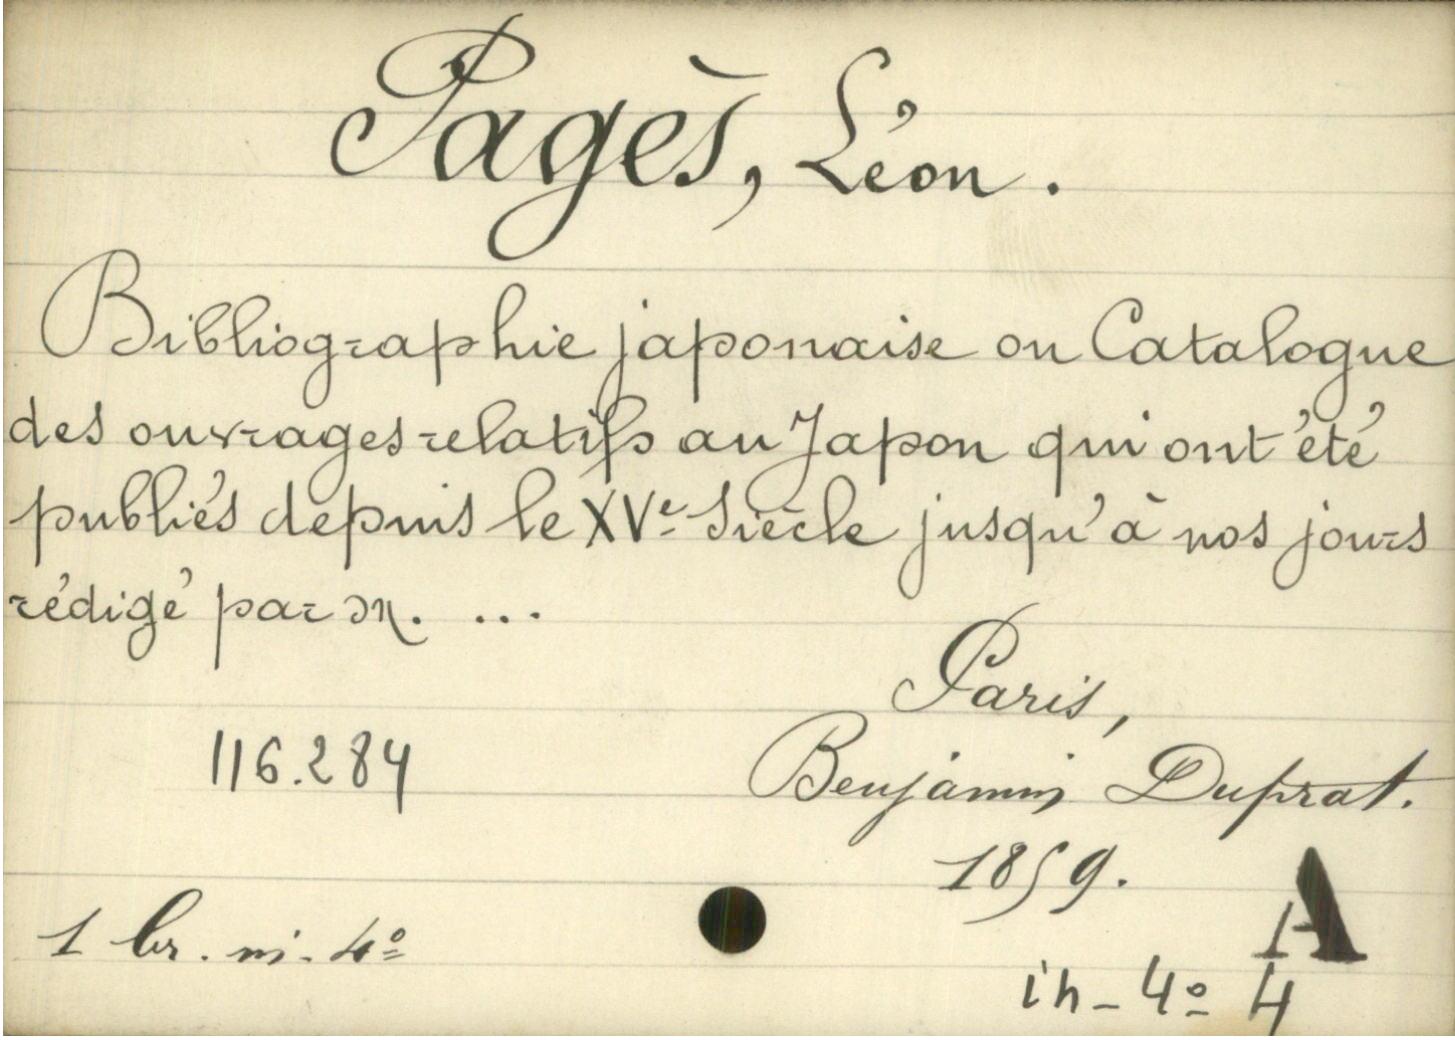 Pagès, Léon.
Bibliographie japonaise ou Catalogue
des ouvrages relatifs au Japon qui ont été
publiés depuis le XVe Siècle jusqu'à nos jours
rédigé par M. ...
Paris,
116.284
Benjamin Duprat.
1859.
A
1 br. in-4º
in-4º 4